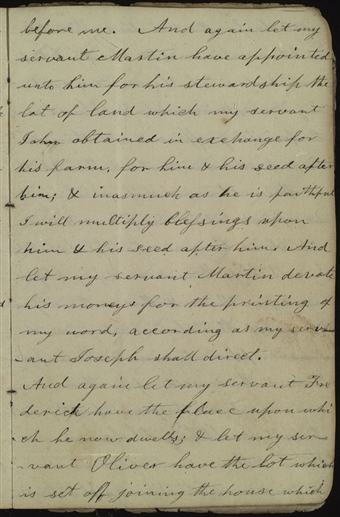 before me. And again let my
servant Martin have appointed
unto him for his stewardship the
lot of land which my servant
John obtained in exchange for
his farm, for him & his seed after
him; & inasmuch as he is faithful
I will multiply blessings upon
him & his seed after him. And
let my servant Martin devote
his moneys for the printing of
my word, according as my serv-
-ant Joseph shall direct.
And again let my servant Fre
derick have the place upon whi
ch he now dwells; & let my ser-
-vant Oliver have the lot which
is set off joining the house which